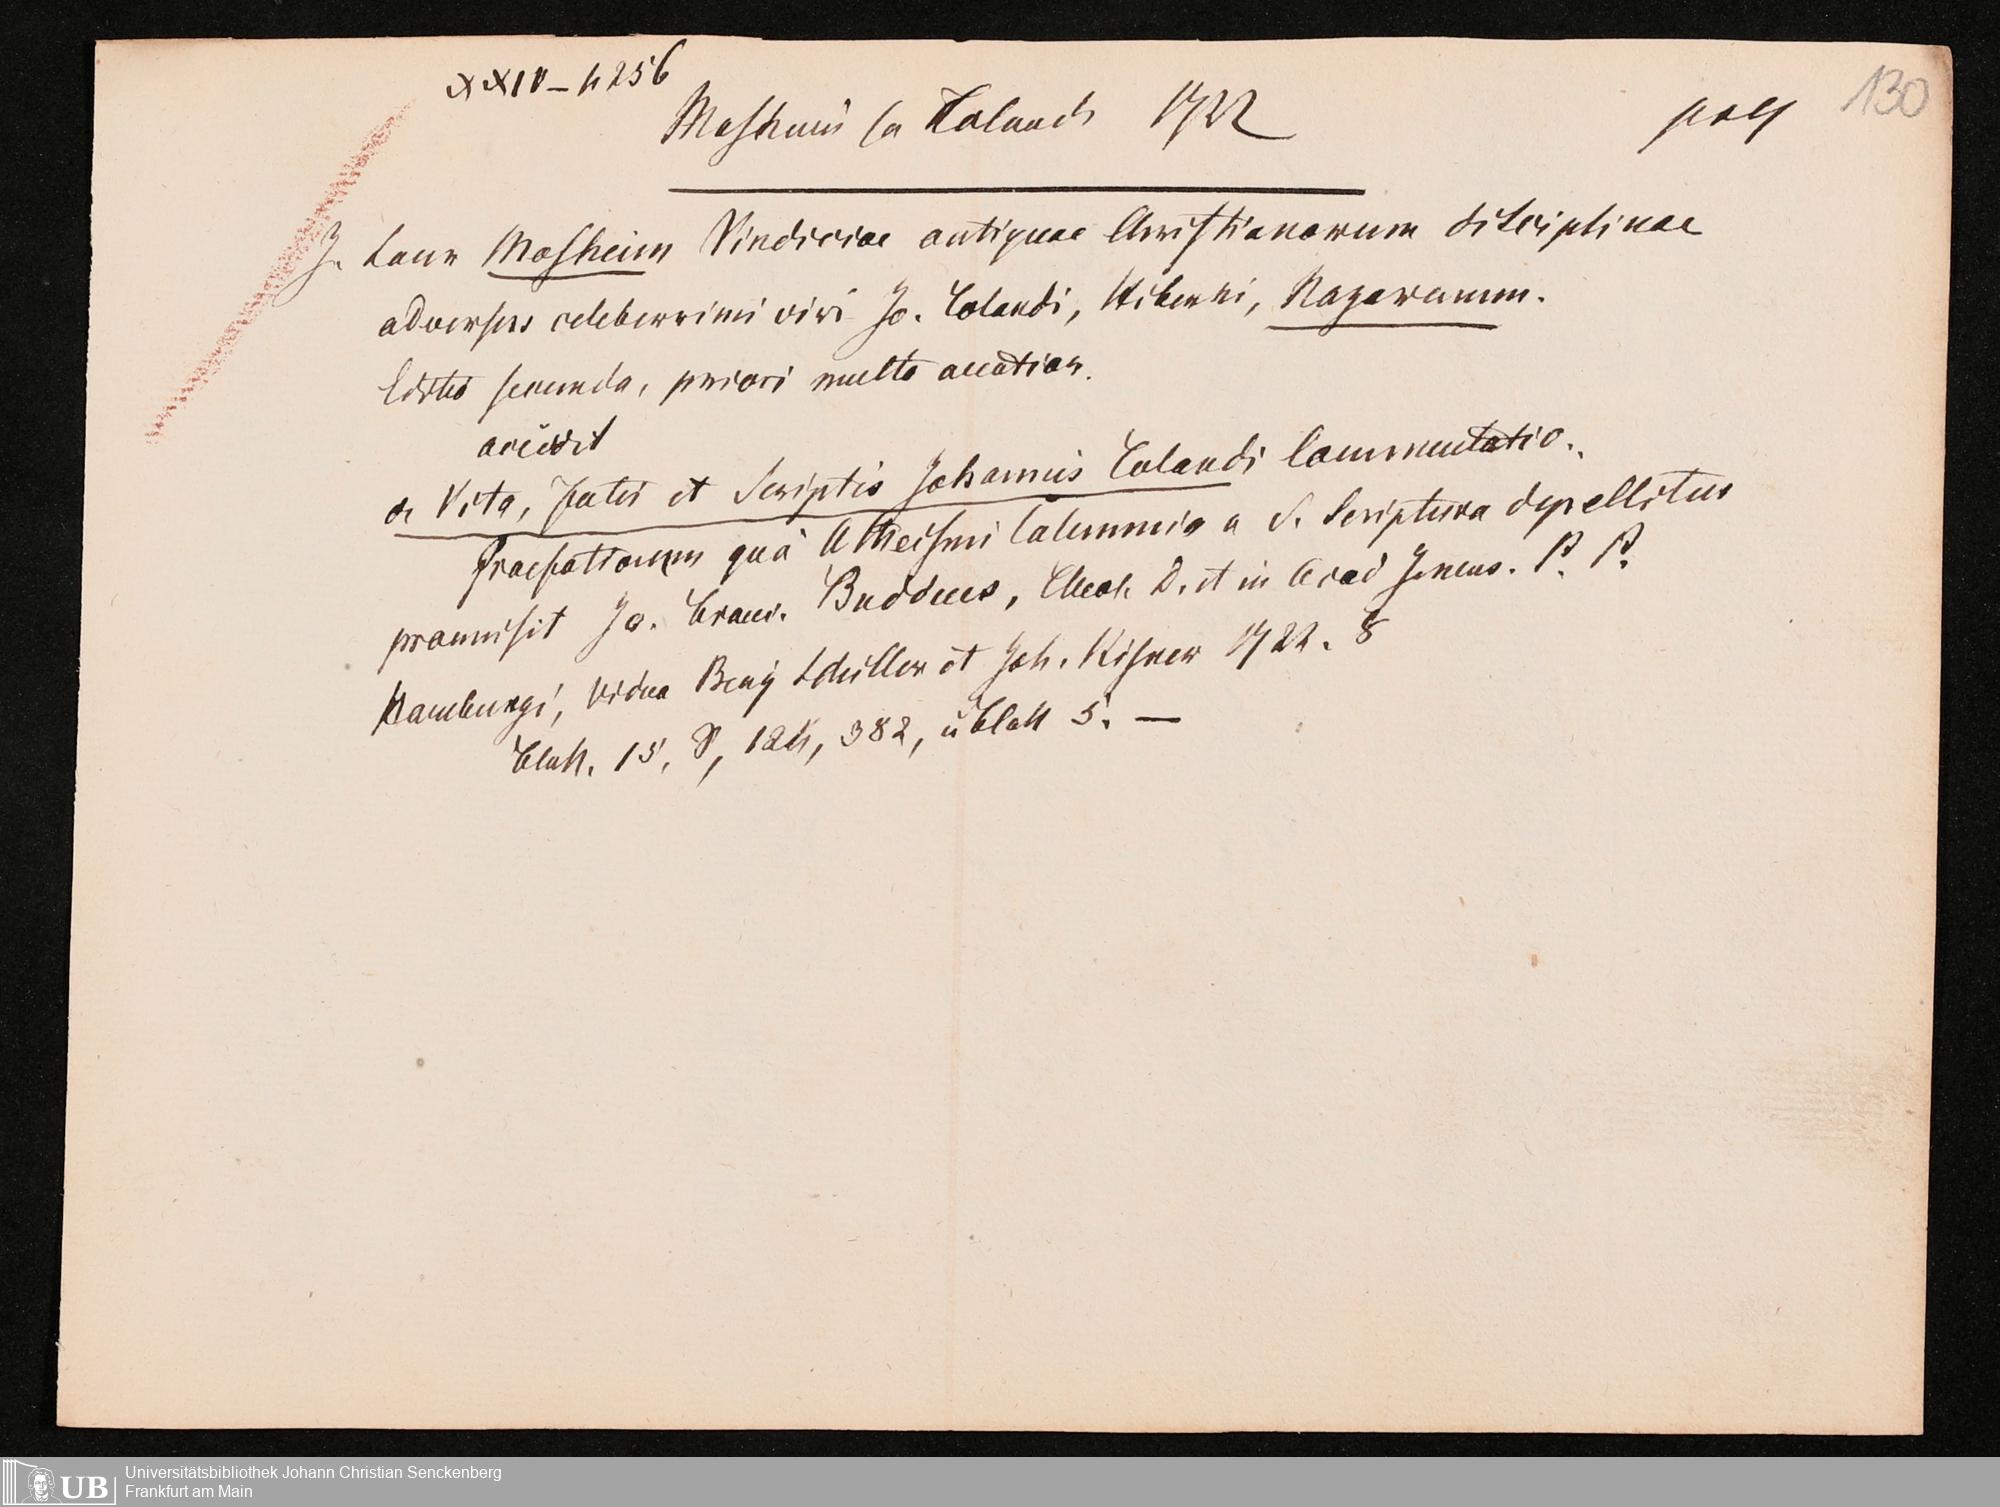 XXIV – 4256
130
Mosheim ca Toland 1722
J. Laur Mosheim Vindiciae antiquae Christianorum disciplinae
adversus celeberrimi viri Jo. Tolandi, Hiberni, Nazarenum.
Editio secunda, priori multo auctior.
accedit
de Vita, fatis et Scriptis Johannis Tolandi Commentatio.
Praefationem quâ Atheismi Calumnia a S. Scriptura depellitur
praemisit Jo. Franc. Buddeus, Theol. D. et in Acad Jenens. P. P.
Hamburgi, vidua Benj Schiller et Joh. Kisner 1722. 8
Blatt. 15, S, 124, 382, u Blatt 5. —
Universitätsbibliothek Johann Christian Senckenberg
Frankfurt am Main
UB